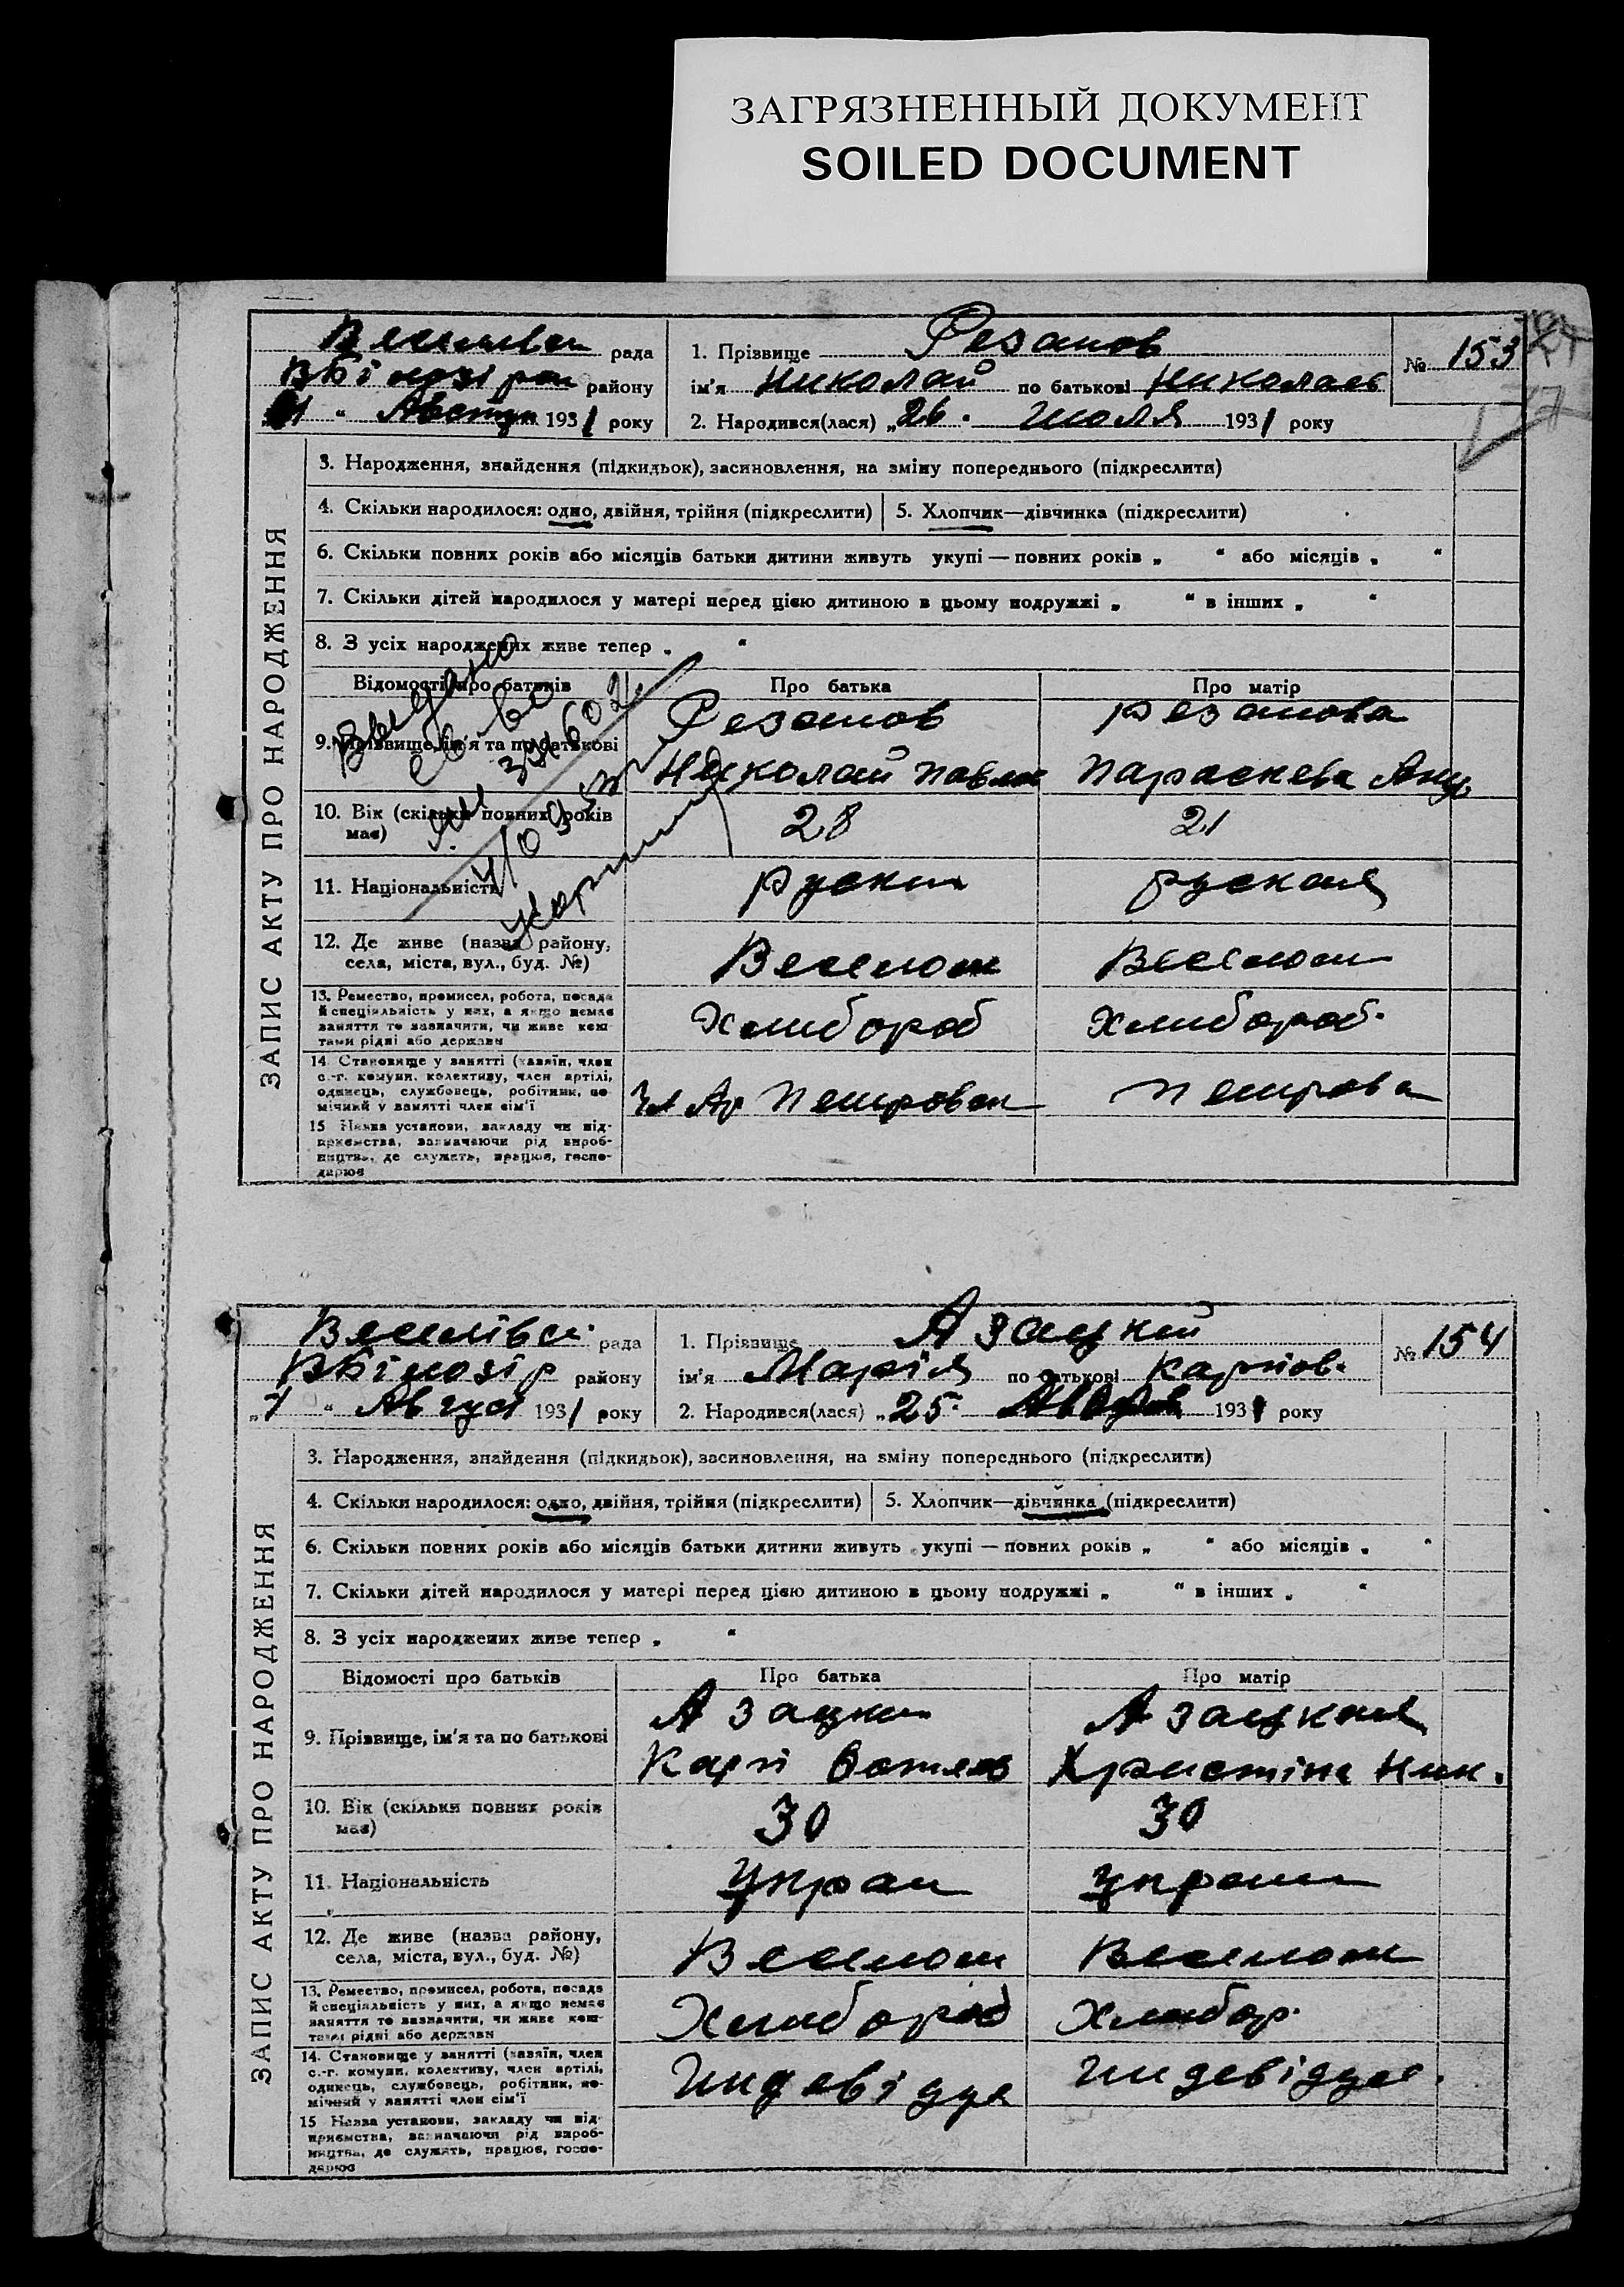 ЗАГРЯЗНЕННЫЙ ДОКУМЕНТ
SOILED DOCUMENT
рада
району
193 1 року
1. Прізвище Резанов
ім'я Николай по батькові Николаев
2. Народився(лася) „26. июля 1931 року
№ 153
ЗАПИС АКТУ ПРО НАРОДЖЕННЯ
3. Народження, знайдення (підкидьок), засиновлення, на зміну попереднього (підкреслити)
4. Скільки народилося: одно, двійня, трійня (підкреслити) 5. Хлопчик—дівчинка (підкреслити)
6. Скільки повних років або місяців батьки дитини живуть укупі — повних років „ “ або місяців „ “
7. Скільки дітей народилося у матері перед цією дитиною в цьому подружжі „ “ в інших „ “
8. З усіх народжених живе тепер „ “
Відомості про батьків Про батька Про матір
9. Прізвище, ім'я та по батькові
Резанов Резанова
Николай Павлов Параскева
10. Вік (скільки повних років має) 28 21
11. Національність Руски руская
12. Де живе (назва району,
села, міста, вул., буд. №)
13. Ремество, промисел, робота, посада
й спеціяльність у них, а якщо немає
заняття то зазначити, чи живе кош-
тами рідні або держави
Хлибороб Хлибороб.
14. Становище у занятті (хазяїн, член
с.-г. комуни, колективу, член артілі,
одинець, службовець, робітник, по-
мічний у занятті член сім'ї
15 Назва установи, закладу чи під-
приємства, зазначаючи рід вироб-
ництва, де служить, працює, госпо-
дарює
рада
району
„1 “ Август 1931 року
1. Прізвище Азацкий
ім'я Марія по батькові Карпов.
2. Народився(лася) „25. 1931 року
№ 154
ЗАПИС АКТУ ПРО НАРОДЖЕННЯ
3. Народження, знайдення (підкидьок), засиновлення, на зміну попереднього (підкреслити)
4. Скільки народилося: одно, двійня, трійня (підкреслити) 5. Хлопчик—дівчинка (підкреслити)
6. Скільки повних років або місяців батьки дитини живуть укупі — повних років „ “ або місяців „ “
7. Скільки дітей народилося у матері перед цією дитиною в цьому подружжі „ “ в інших „ “
8. З усіх народжених живе тепер „ “
Відомості про батьків Про батька Про матір
9. Прізвище, ім'я та по батькові
Азацки Азацкая
Карп Христіна Ник.
10. Вік (скільки повних років має) 30 30
11. Національність Украи украи
12. Де живе (назва району,
села, міста, вул., буд. №)
13. Ремество, промисел, робота, посада
й спеціяльність у них, а якщо немає
заняття то зазначити, чи живе кош-
тами рідні або держави
Хлибороб Хлибор.
14. Становище у занятті (хазяїн, член
с.-г. комуни, колективу, член артілі,
одинець, службовець, робітник, по-
мічний у занятті член сім'ї
Индевідуа индевідуал.
15 Назва установи, закладу чи під-
приємства, зазначаючи рід вироб-
ництва, де служить, працює, госпо-
дарює